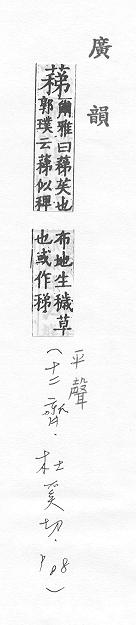 廣韻
蕛
爾雅曰蕛苵也
郭璞云蕛似稗
布地生穢草
也或作稊
平聲
(十二齊.杜奚切.P88)